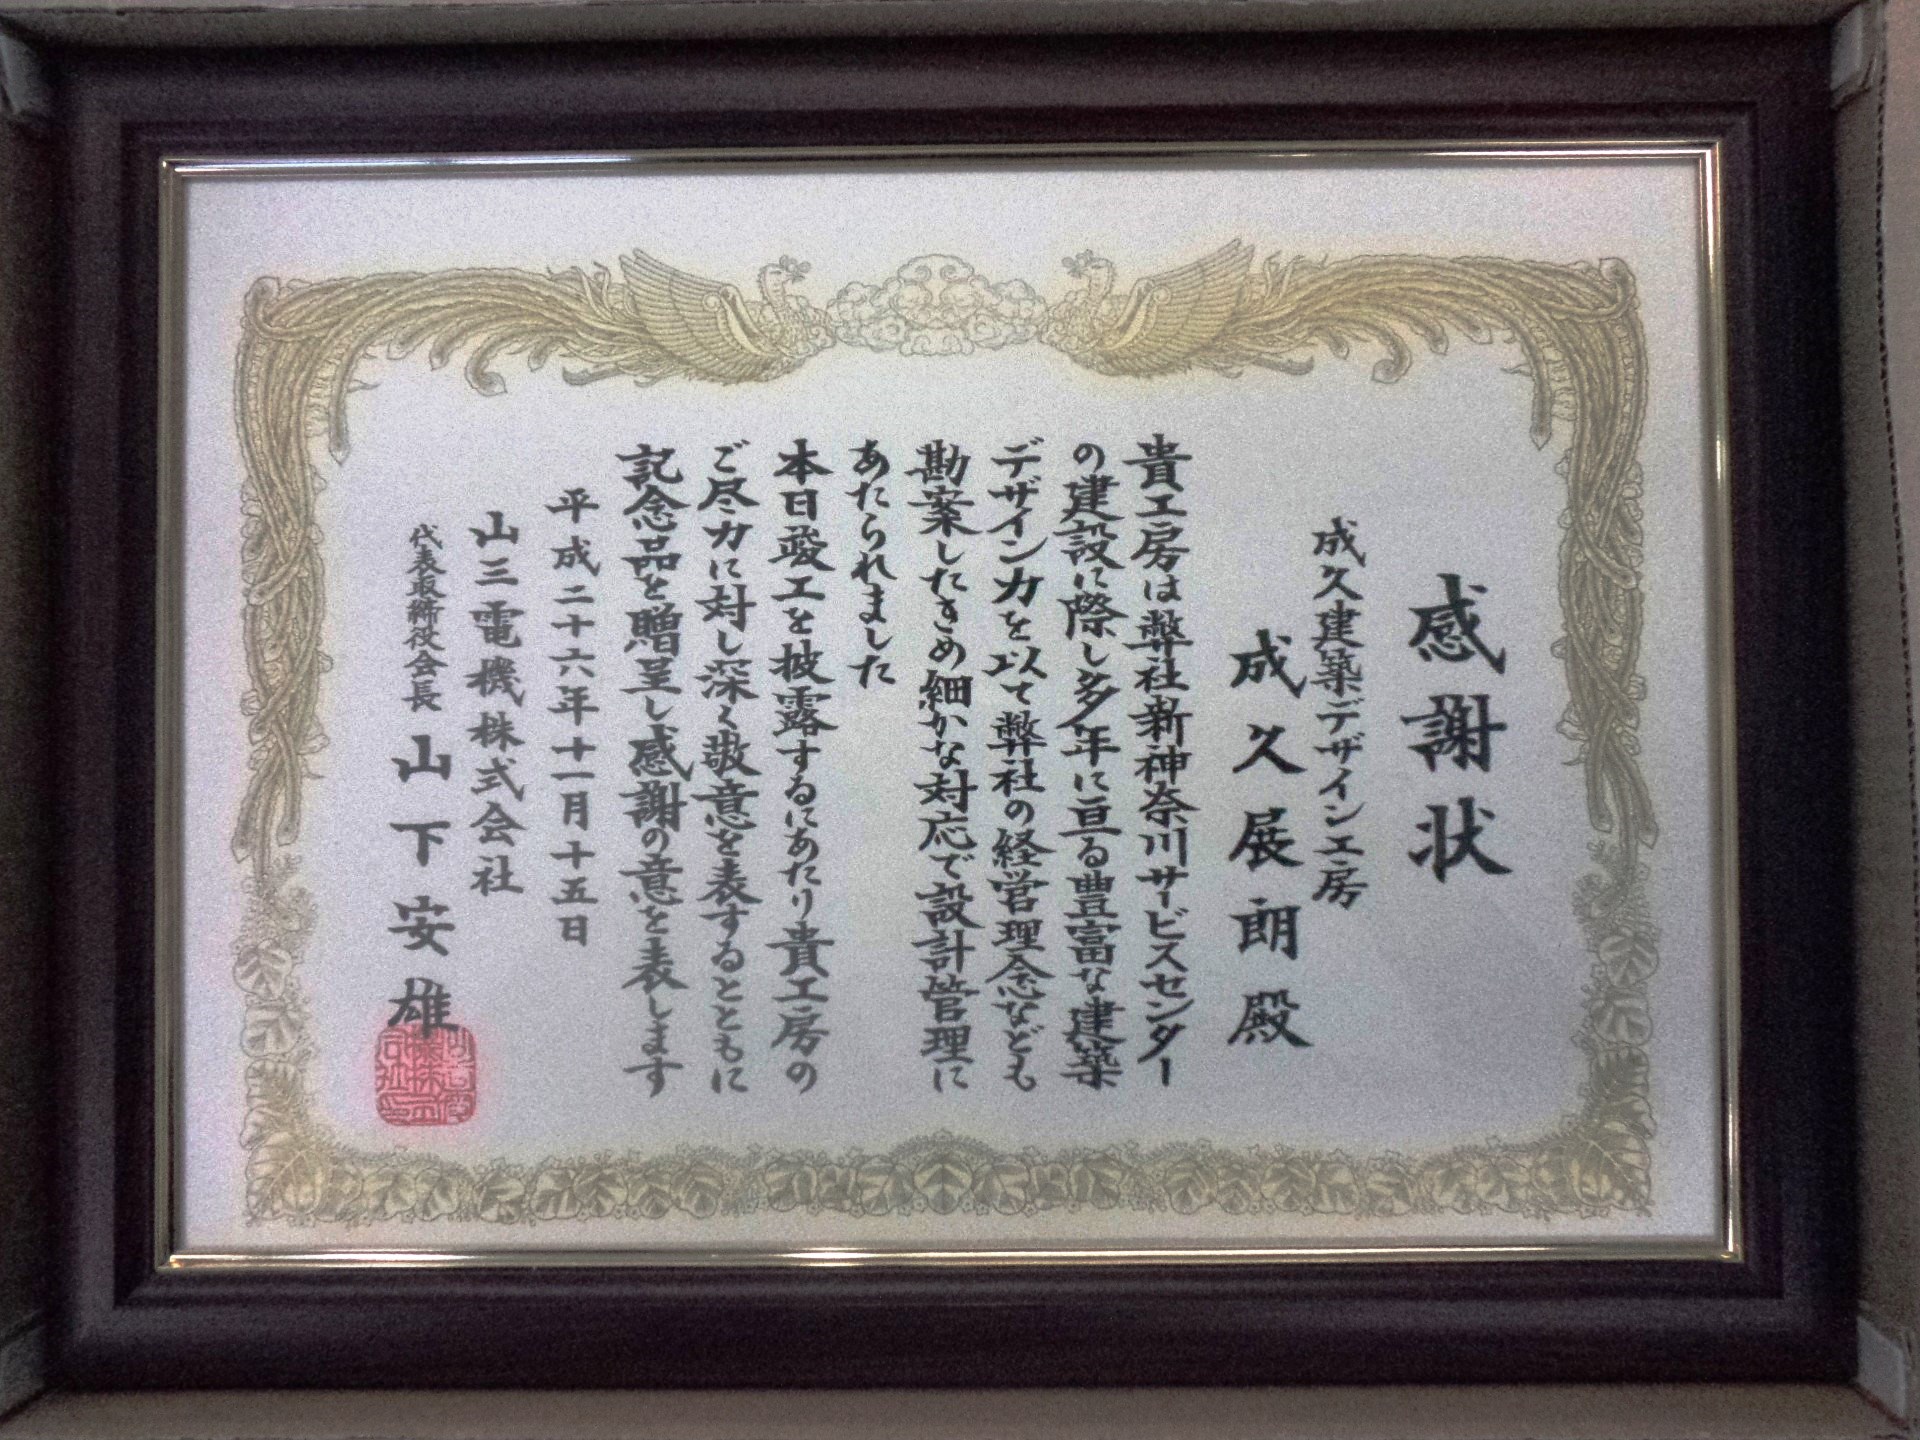 感謝状
成久建築デザイン工房
成久展朗殿
貴工房は弊社新神奈川サービスセンター
の建設に際し多年に亘る豊富な建築
デザイン力を以て弊社の経営理念なども
勘案したきめ細かな対応で設計管理に
あたられました
本日竣工を披露するにあたり貴工房の
ご尽力に対し深く敬意を表するとともに
記念品を贈呈し感謝の意を表します
平成二十六年十一月十五日
山三電機株式会社
代表取締役会長 山下安雄